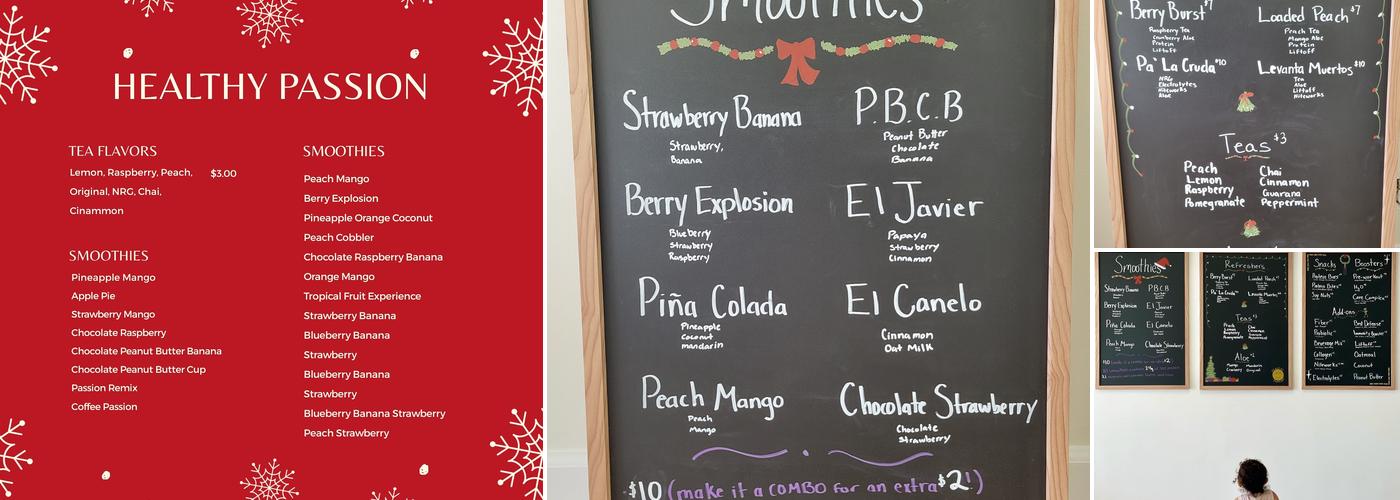 HEALTHY PASSION
TEA FLAVORS
Lemon, Raspberry, Peach, $3.00
Original, NRG, Chai,
Cinammon
SMOOTHIES
Pineapple Mango
Apple Pie
Strawberry Mango
Chocolate Raspberry
Chocolate Peanut Butter Banana
Chocolate Peanut Butter Cup
Passion Remix
Coffee Passion
SMOOTHIES
Peach Mango
Berry Explosion
Pineapple Orange Coconut
Peach Cobbler
Chocolate Raspberry Banana
Orange Mango
Tropical Fruit Experience
Strawberry Banana
Blueberry Banana
Strawberry
Blueberry Banana
Strawberry
Blueberry Banana Strawberry
Peach Strawberry
Smoothies
Strawberry Banana
Strawberry,
Banana
P.B.C.B
Peanut Butter
Chocolate
Banana
Berry Explosion
Blueberry
Strawberry
Raspberry
El Javier
Papaya
Strawberry
Cinnamon
Piña Colada
Pineapple
Coconut
mandarin
El Canelo
Cinnamon
Oat Milk
Peach Mango
Peach
Mango
Chocolate Strawberry
Chocolate
Strawberry
$10 (make it a COMBO for an extra $2!)
Berry Burst $7
Raspberry Tea
Cranberry Aloe
Protein
Liftoff
Loaded Peach $7
Peach Tea
Mango Aloe
Protein
Liftoff
Pa' La Cruda $10
NRG
Electrolytes
Niteworks
Aloe
Levanta Muertos $10
Tea
Aloe
Liftoff
Niteworks
Teas $3
Peach
Lemon
Raspberry
Pomegranate
Chai
Cinnamon
Guarana
Peppermint
Smoothies
Strawberry Banana
P.B.C.B
Berry Explosion
El Javier
Piña Colada
El Canelo
Peach Mango
Chocolate Strawberry
Refreshers
Berry Burst
Loaded Peach
Pa' La Cruda
Levanta Muertos
Teas
Peach
Lemon
Raspberry
Pomegranate
Chai
Cinnamon
Guarana
Peppermint
Aloe
Mango
Cranberry
Mandarin
Original
Snacks
Protein Bars
Soy Nuts
Boosters
Pre-workout
H₂O
Add-ons
Fiber
Probiotic
Beverage Mix
Collagen
Niteworks
Electrolytes
Immunity Booster
Liftoff
Oatmeal
Coconut
Peanut Butter